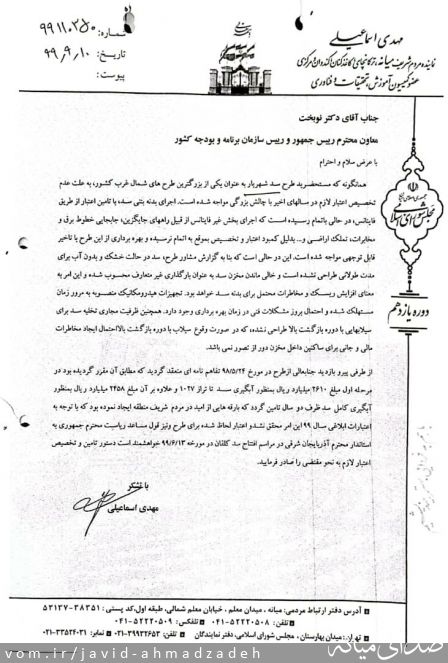 مهدی اسماعیلی
نماینده مردم شریف میانه، ترکمانچای، کاغذکنان، کندوان مرکزی
عضو کمیسیون آموزش، تحقیقات و فناوری
شماره:
تاریخ: ۹۹,۹,۱۰
پیوست:
جناب آقای دکتر نوبخت
معاون محترم رییس جمهور و رییس سازمان برنامه و بودجه کشور
با عرض سلام و احترام
همانگونه که مستحضرید طرح سد شهریار به عنوان یکی از بزرگترین طرح های شمال غرب کشور، به علت عدم
تخصیص اعتبار لازم در سالهای اخیر با چالش بزرگی مواجه شده است. اجرای بدنه بتنی سد، با تامین اعتبار از طریق
فاینانس، در حالی باتمام رسیده است که اجرای بخش غیر فاینانس از قبیل راههای جایگزین، جابجایی خطوط برق و
مخابرات، تملک اراضی و.. بدلیل کمبود اعتبار و تخصیص بموقع به اتمام نرسیده و بهره برداری از این طرح با تاخیر
قابل توجهی مواجه شده است. این در حالی است که بنا به گزارش مشاور طرح، سد در حالت خشک و بدون آب برای
مدت طولانی طراحی نشده است و خالی ماندن مخزن سد به عنوان بارگذاری غیر متعارف محسوب شده و این امر به
معنای افزایش ریسک و مخاطرات محتمل برای بدنه سد خواهد بود. تجهیزات هیدرومکانیک منصوبه به مرور زمان
مستهلک شده و احتمال بروز مشکلات فنی در زمان بهره برداری وجود دارد. همچنین ظرفیت مجاری تخلیه سد برای
سیلابهایی با دوره بازگشت بالا طراحی نشده، که در صورت وقوع سیلاب با دوره بازگشت بالااحتمال ایجاد مخاطرات
مالی و جانی برای ساکنین داخل مخزن دور از تصور نمی باشد.
از طرفی پیرو بازدید جنابعالی ازطرح در مورخ ۹۸/۵/۲۴ تفاهم نامه ای منعقد گردید که مطابق آن مقرر گردیده بود در
مرحله اول مبلغ ۲۶۱۰ میلیارد ریال بمنظور آبگیری سد تا تراز ۱۰۲۷ و علاوه بر آن مبلغ ۲۴۵۸ میلیارد ریال بمنظور
آبگیری کامل سد ظرف دو سال تامین گردد که بارقه هایی از امید در مردم شریف منطقه ایجاد نموده بود که با توجه به
اعتبارات ابلاغی سال ۹۹ این امر محقق نشد و اعتبار لحاظ شده برای طرح ونیز قول مساعد ریاست محترم جمهوری به
استاندار محترم آذربایجان شرقی در مراسم افتتاح سد کلقان در مورخه ۹۹/۶/۱۳ خواهشمند است دستور تامین و تخصیص
اعتبار لازم به نحو مقتضی را صادر فرمایید.
با تشکر
مهدی اسماعیلی
جمهوری اسلامی ایران
مجلس شورای اسلامی
دوره یازدهم
آدرس دفتر ارتباط مردمی: میانه، میدان معلم، خیابان معلم شمالی، طبقه اول، کد پستی: ۳۸۳۵۱-۵۳۱۳۷
تلفن: ۵۲۲۲۰۵۰۸-۰۴۱ فکس: ۵۲۲۲۰۵۰۹-۰۴۱
تهران: میدان بهارستان، مجلس شورای اسلامی، دفتر نمایندگان تلفن: ۳۹۹۳۲۶۵۳-۰۲۱ نمابر: ۳۳۵۲۴۰۳۱-۰۲۱
صدای میانه
vom.ir/javid-ahmadzadeh